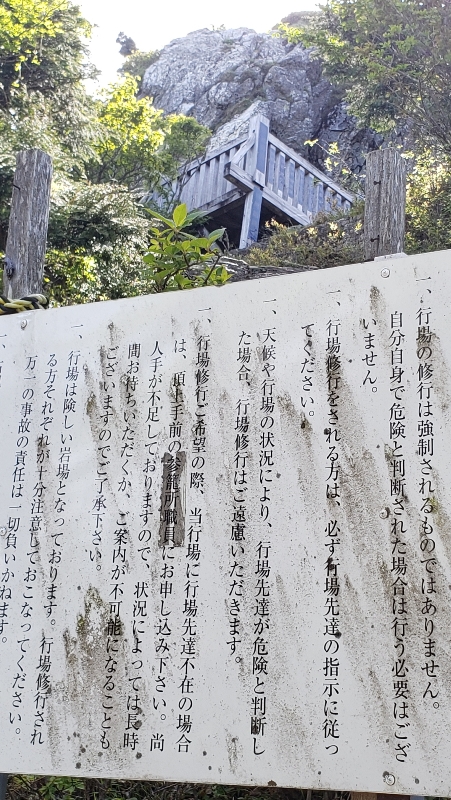 一、行場の修行は強制されるものではありません。
自分自身で危険と判断された場合は行う必要はござ
いません。
一、行場修行をされる方は、必ず行場先達の指示に従っ
てください。
一、天候や行場の状況により、行場先達が危険と判断し
た場合、行場修行はご遠慮いただきます。
一、行場修行ご希望の際、当行場に行場先達不在の場合
は、頂上手前の参籠所職員にお申し込み下さい。尚
人手が不足しておりますので、状況によっては長時
間お待ちいただくか、ご案内が不可能になることも
ございますのでご了承下さい。
一、行場は険しい岩場となっております。行場修行され
る方それぞれが十分注意しておこなってください。
万一の事故の責任は一切負いかねます。